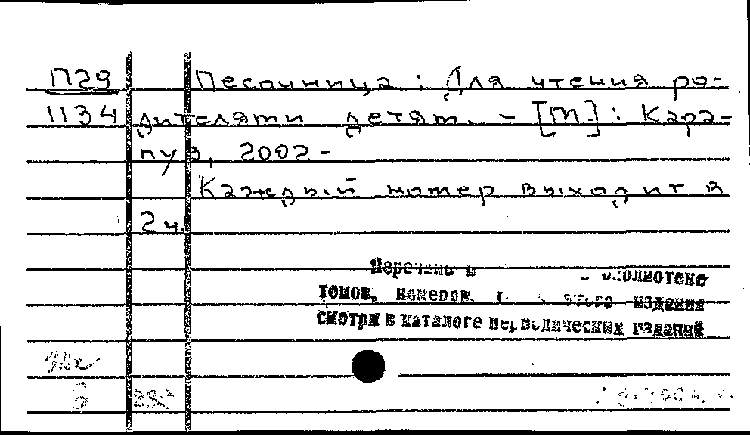 П29 Песочница : Для чтения ро-
1134 дителями детям. - [М] : Кара-
пуз, 2002 -
Каждый номер выходит в
2 ч.
Перечень в библиотеке
томов, номеров, этого издания
смотри в каталоге периодических изданий